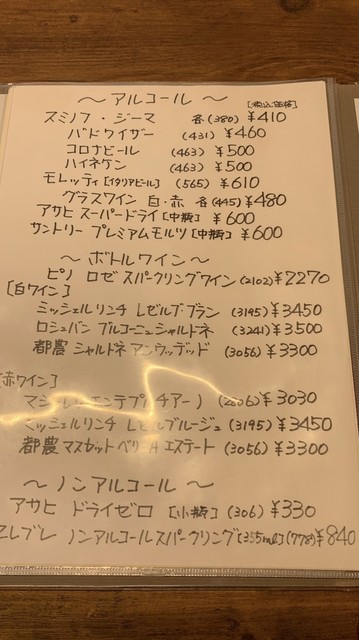 ～ アルコール ～
[税込価格]
スミノフ・ジーマ 各(380) ¥410
バドワイザー (431) ¥460
コロナビール (463) ¥500
ハイネケン (463) ¥500
モレッティ[イタリアビール] (565) ¥610
グラスワイン 白・赤 各(445) ¥480
アサヒ スーパードライ[中瓶] ¥600
サントリー プレミアムモルツ[中瓶] ¥600
～ ボトルワイン ～
ピノ ロゼ スパークリングワイン(2102)¥2270
[白ワイン]
ミッシェルリンチ レゼルブ・ブラン (3195)¥3450
ロシュバン ブルゴーニュシャルドネ (3241)¥3500
都農 シャルドネ アンウッデッド (3056)¥3300
[赤ワイン]
¥3030
ミッシェルリンチ レゼルブルージュ (3195)¥3450
都農 マスカットベリーA エステート (3056)¥3300
～ ノンアルコール ～
アサヒ ドライゼロ [小瓶] (306)¥330
ゼレブレ ノンアルコールスパークリング[355ml](778)¥840